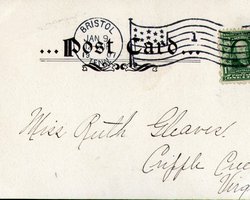 BRISTOL
JAN 9
TENN.
1
...Post Card...
Miss Ruth Gleaves.
Cripple Cree
Virg